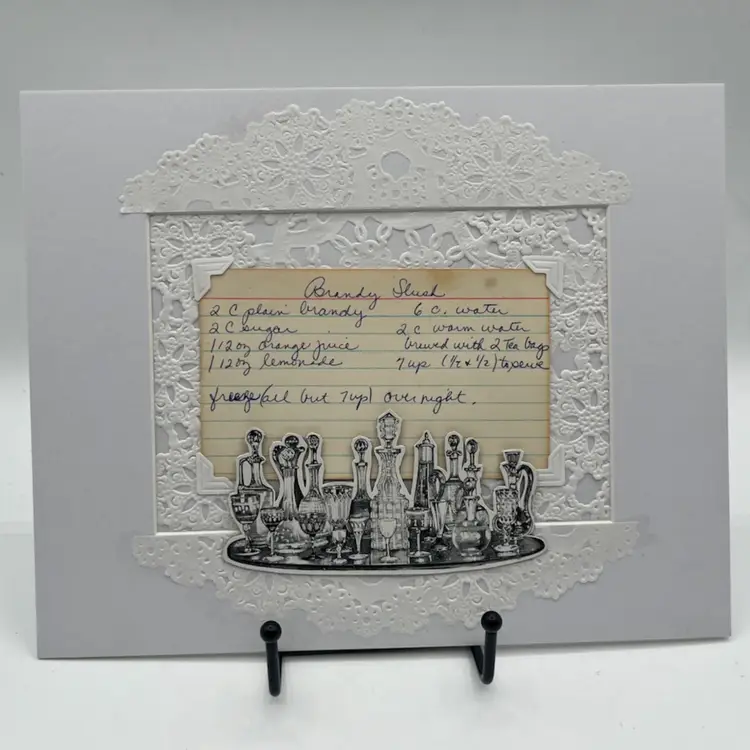 Brandy Slush
2 C plain brandy 6 c. water
2 C sugar 2 c warm water
1 12oz orange juice brewed with 2 Tea bags
1 12oz lemonade 7 up (1/2 + 1/2) to serve
freeze (all but 7up) overnight.